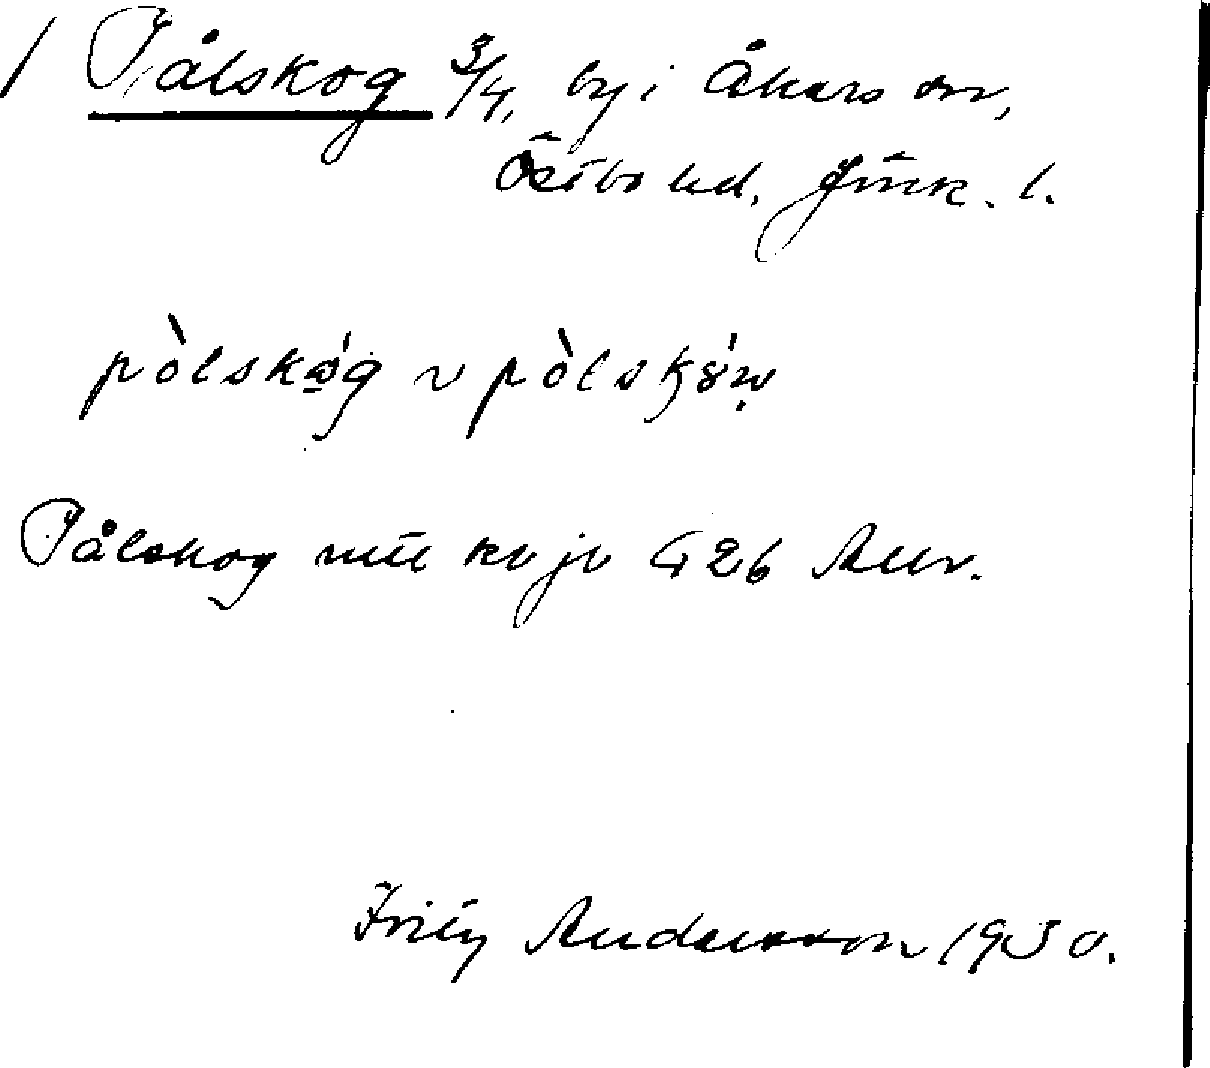 / Pålskog 3/4, by i Åkers sn,
Östbo hd, Jönk. l.
pòlskǿg ~ pòlskóᶇ
Pålskog mtl kv jb 426 Anv.
Fritz Andersson 1930.